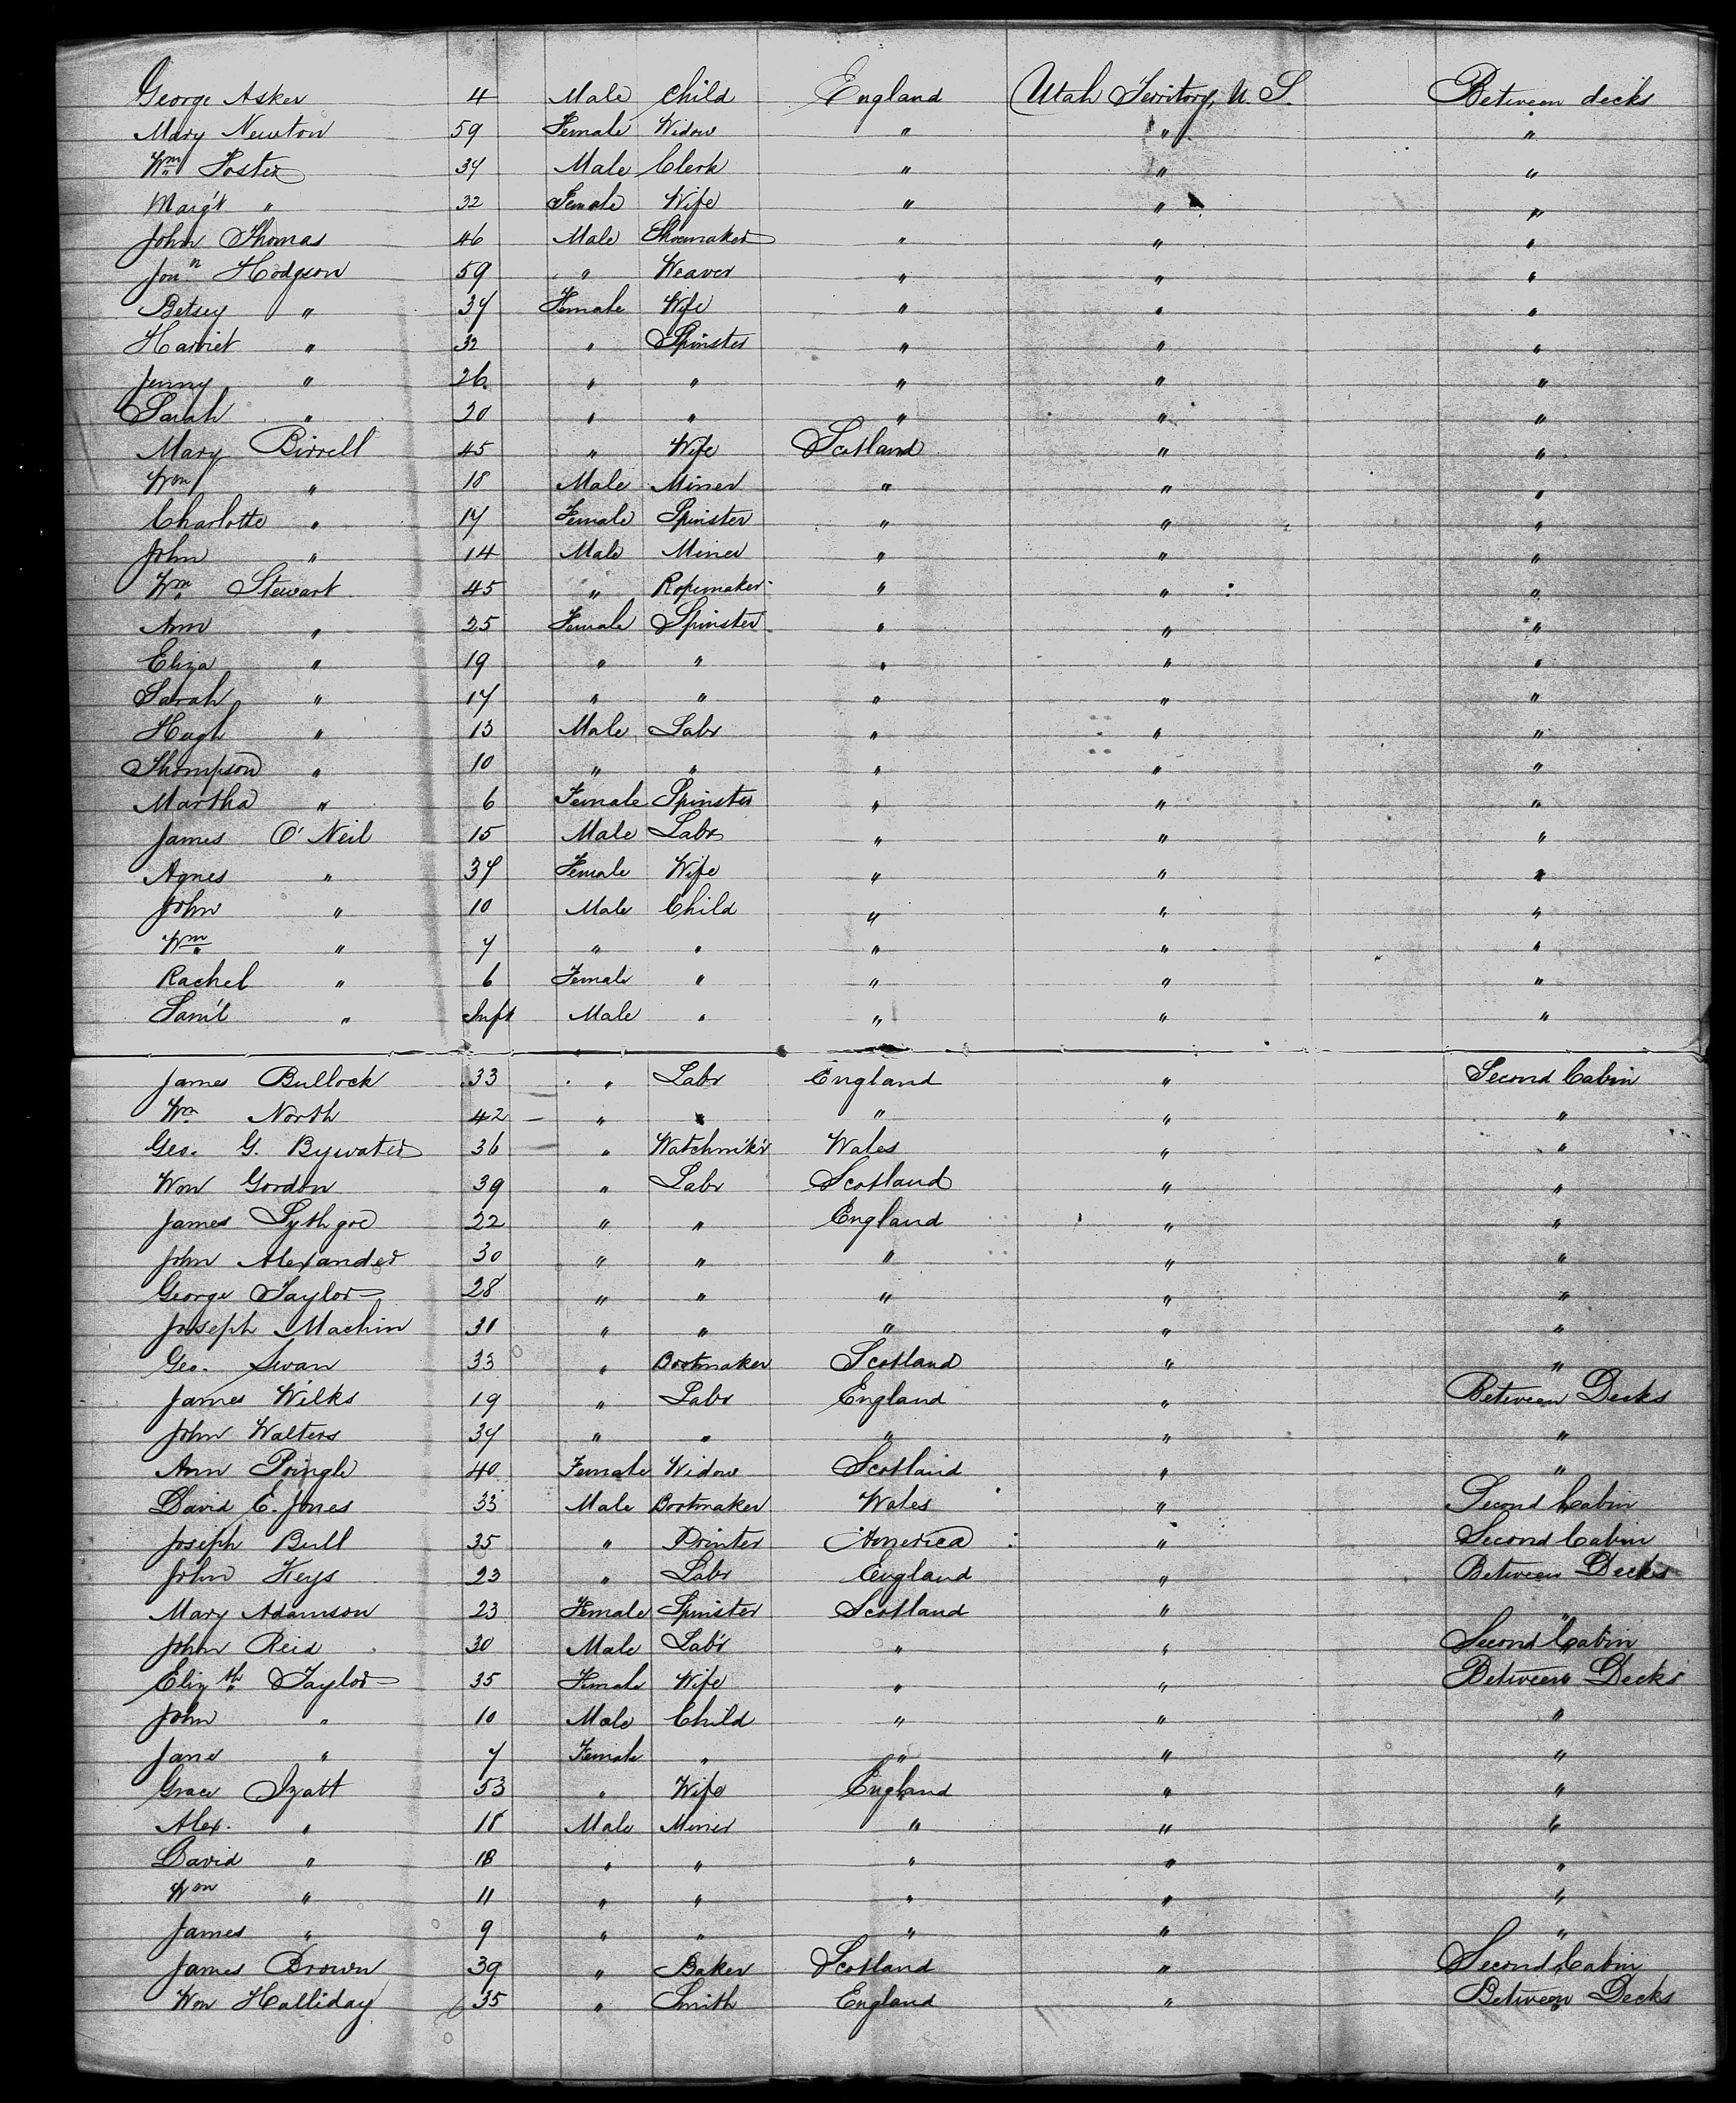 George Asker 4 Male Child England Utah Territory, U. S. Between decks
Mary Newton 59 Female Widow " " "
Wm Foster 37 Male Clerk " " "
Marg't " 32 Female Wife " " "
John Thomas 46 Male Shoemaker " " "
Jonn Hodgson 59 " Weaver " " "
Betsey " 37 Female Wife " " "
Harriet " 32 " Spinster " " "
Jenny " 26 " " " " "
Sarah " 20 " " " " "
Mary Birrell 45 " Wife Scotland " "
Wm " 18 Male Miner " " "
Charlotte " 17 Female Spinster " " "
John " 14 Male Miner " " "
Wm Stewart 45 " Ropemaker " " "
Ann " 25 Female Spinster " " "
Eliza " 19 " " " " "
Sarah " 17 " " " " "
Hugh " 13 Male Labr " " "
Thompson " 10 " " " " "
Martha " 6 Female Spinster " " "
James O'Neil 15 Male Labr " " "
Agnes " 37 Female Wife " " "
John " 10 Male Child " " "
Wm " 7 " " " " "
Rachel " 6 Female " " " "
Sam'l " Inft Male " " " "
James Bullock 33 " Labr England " Second Cabin
Wm North 42 " " " " "
Geo. G. Bywater 36 " Watchmk'r Wales " "
Wm Gordon 39 " Labr Scotland " "
James Lythgoe 22 " " England " "
John Alexander 30 " " " " "
George Taylor 28 " " " " "
Joseph Machin 31 " " " " "
Geo. Swan 33 " Bootmaker Scotland " "
James Wilks 19 " Labr England " Between Decks
John Walters 37 " " " " "
Ann Pringle 40 Female Widow Scotland " "
David E. Jones 33 Male Bootmaker Wales " Second Cabin
Joseph Bull 35 " Printer America " Second Cabin
John Keys 23 " Labr England " Between Decks
Mary Adamson 23 Female Spinster Scotland " "
John Reid 30 Male Lab'r " " Second Cabin
Elizth Taylor 35 Female Wife " " Between Decks
John " 10 Male Child " " "
Jane " 7 Female " " " "
Grace Izatt 53 " Wife England " "
Alex. " 18 Male Miner " " "
David " 18 " " " " "
Wm " 11 " " " " "
James " 9 " " " " "
James Brown 39 " Baker Scotland " Second Cabin
Wm Halliday 35 " Smith England " Between Decks